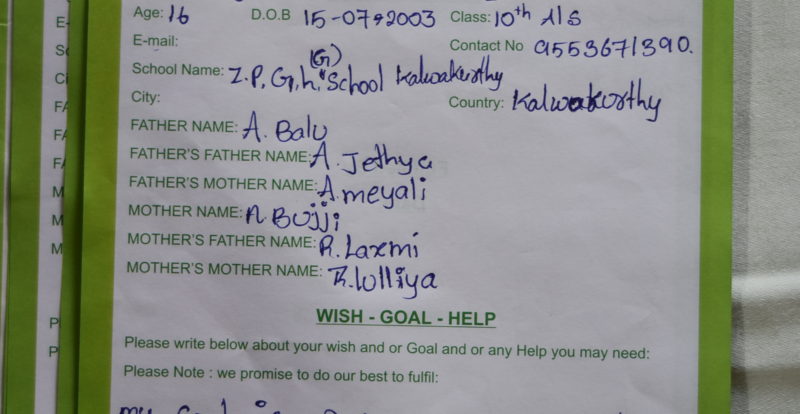 Age: 16 D.O.B 15-07-2003 Class: 10th A/S
E-mail: Contact No 9553671390.
(G)
School Name: Z.P.G.h.s School Kalwakurthy
City: Country: Kalwakurthy
FATHER NAME: A. Balu
FATHER'S FATHER NAME: A. Jethya
FATHER'S MOTHER NAME: A. meyali
MOTHER NAME: A. Bujji
MOTHER'S FATHER NAME: R. Laxmi
MOTHER'S MOTHER NAME: R. lolliya
WISH - GOAL - HELP
Please write below about your wish and or Goal and or any Help you may need:
Please Note : we promise to do our best to fulfil:
my